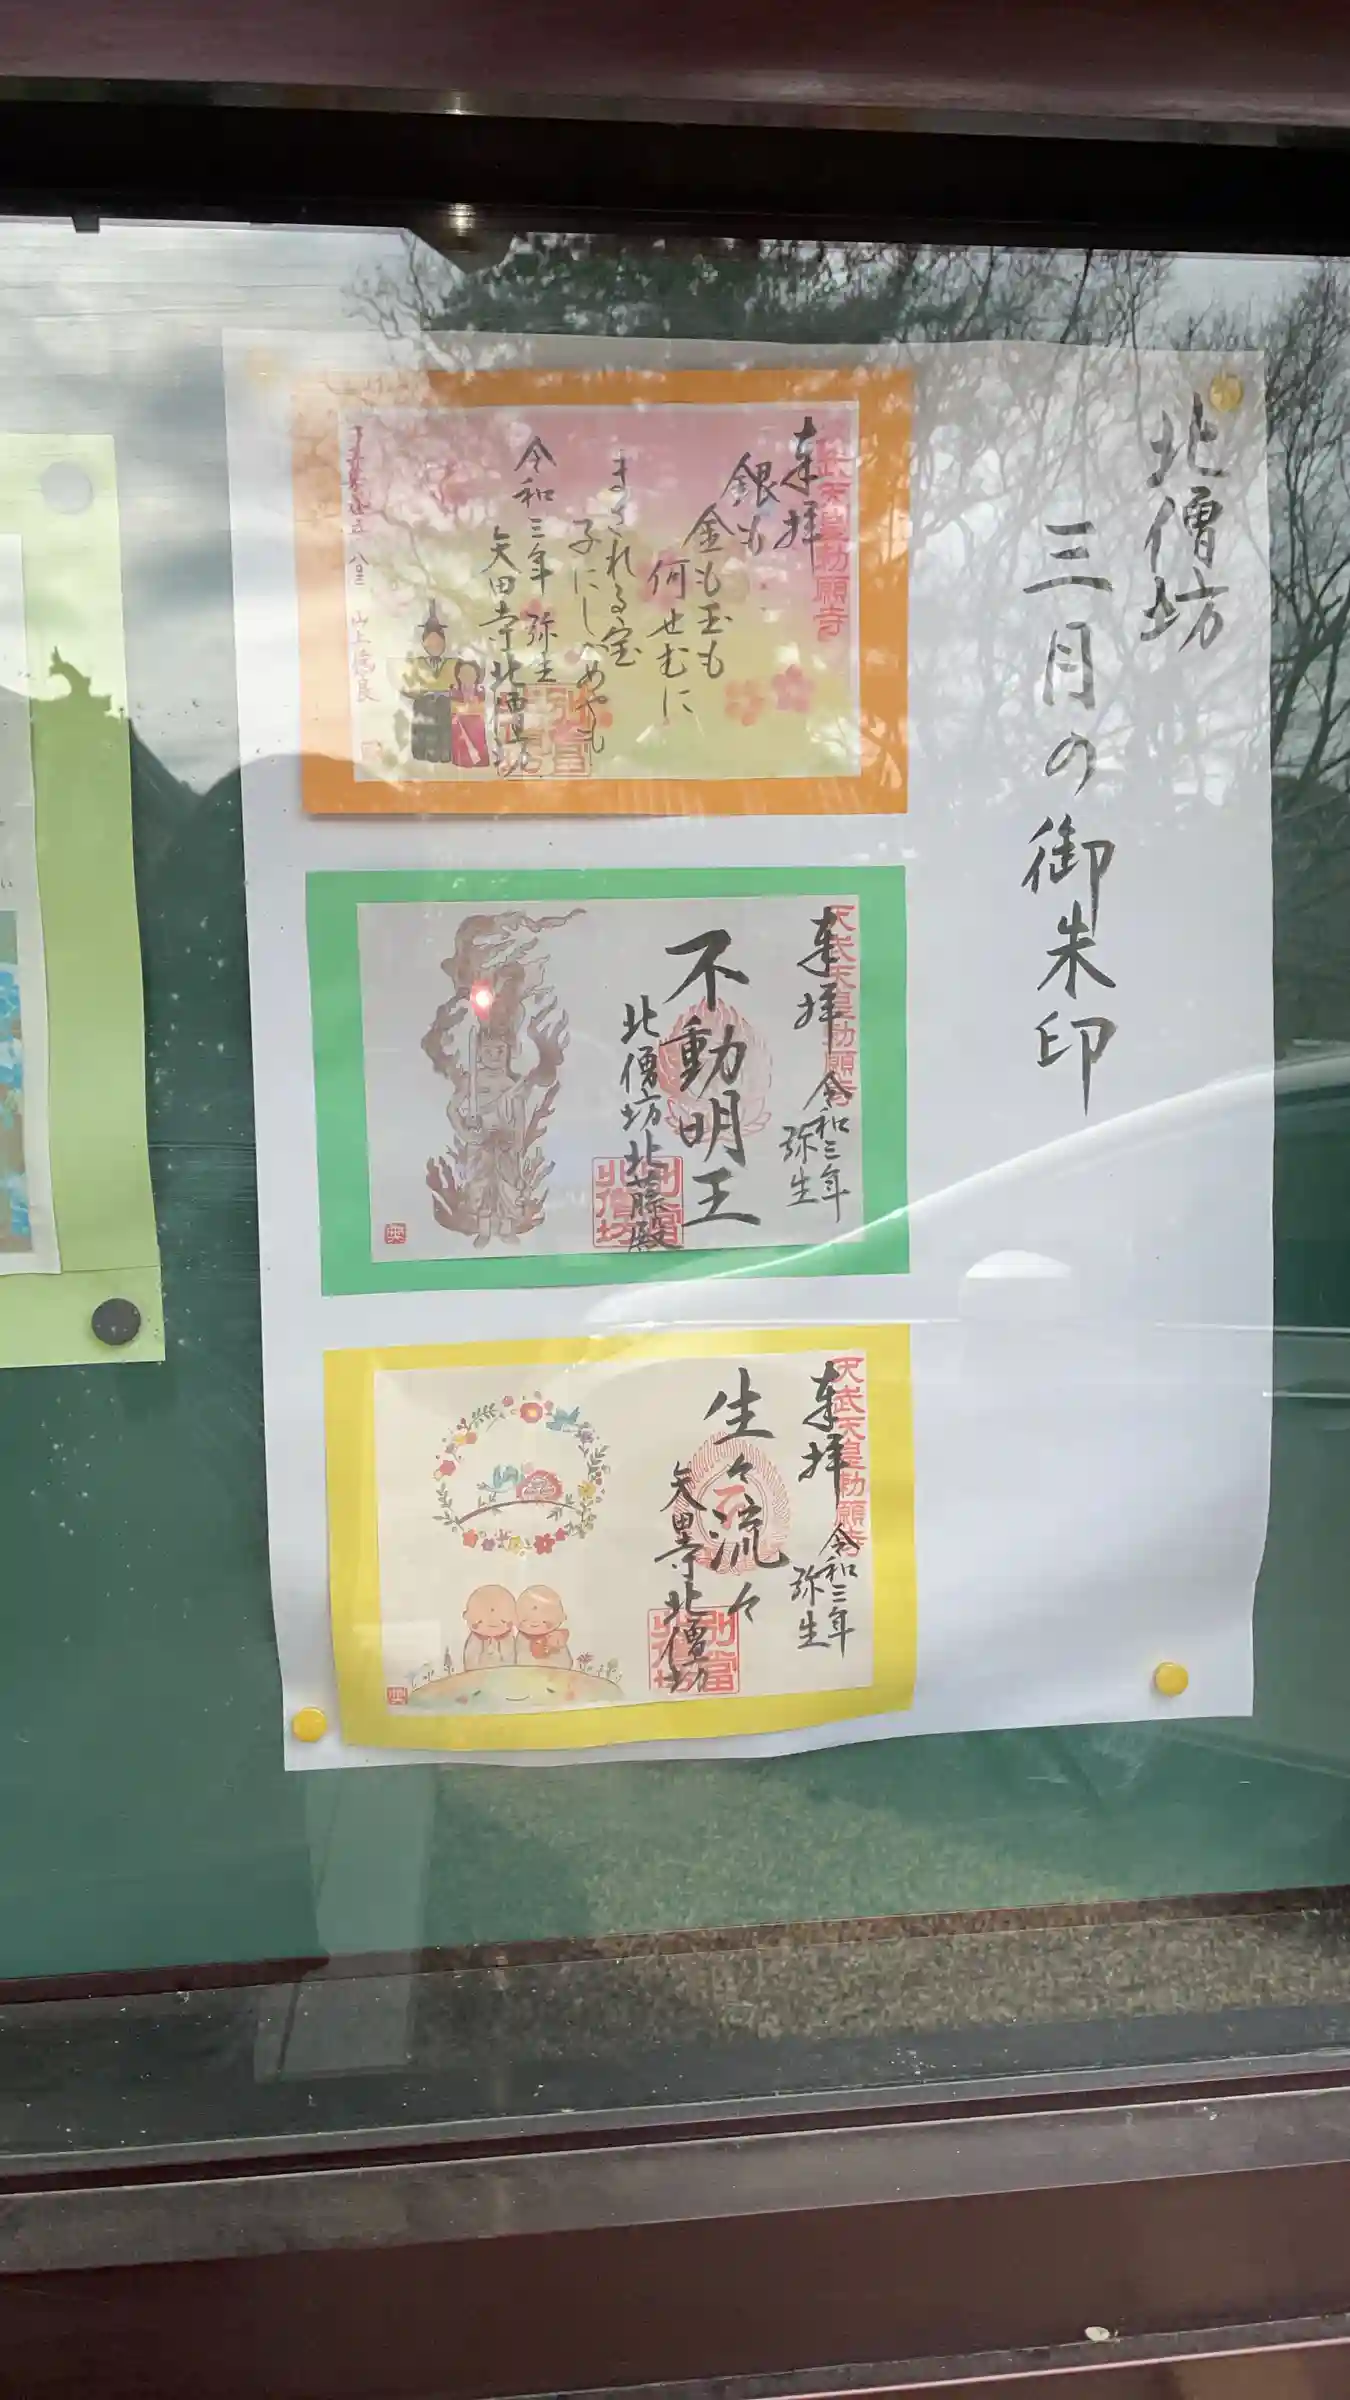 北僧坊
三月の御朱印
奉拝
天武天皇勅願寺
銀も
金も玉も
何せむに
まされる宝
子にしかめやも
令和三年 弥生
矢田寺北僧坊
山上憶良
奉拝
天武天皇勅願寺
令和三年
弥生
不動明王
北僧坊北藤殿
別當
北僧坊
奉拝
天武天皇勅願寺
令和三年
弥生
生々流々
矢田寺北僧坊
別當